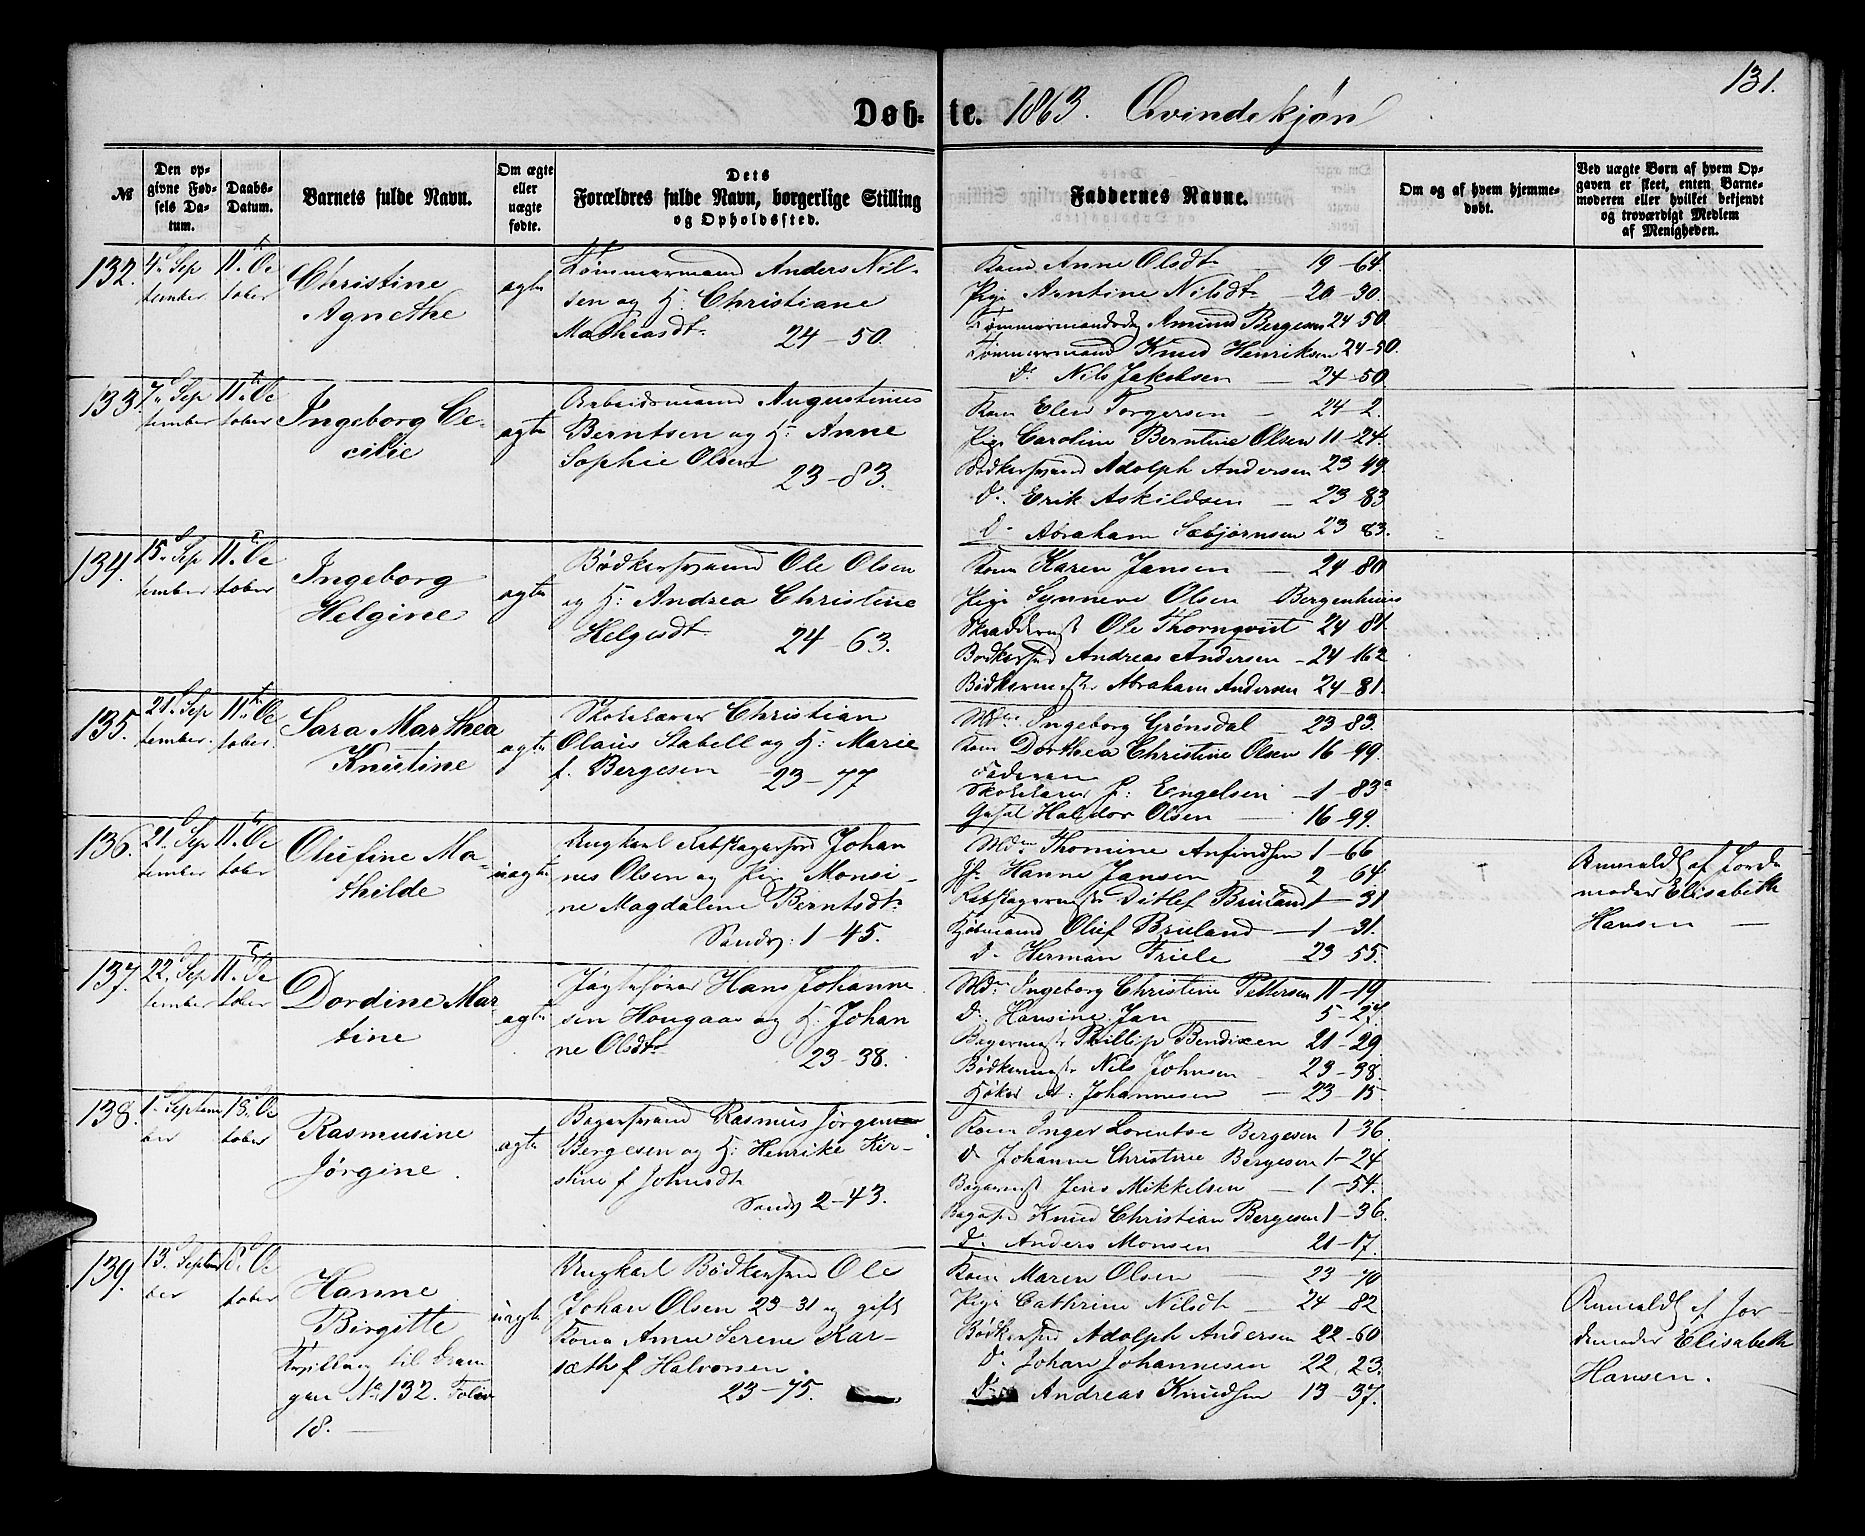 131.
Døb- te. 1863. Qvindekjøn
№
Den opgivne Fødsels Datum.
Daabs-Datum.
Barnets fulde Navn.
Om ægte eller uægte fødte.
Dets Forældres fulde Navn, borgerlige Stilling og Opholdssted.
Faddernes Navne.
Om og af hvem hjemmedøbt.
Ved uægte Børn af hvem Opgaven er skeet, enten Barnemoderen eller hvilket bekjendt og troværdigt Medlem af Menigheden.
132. 4de September 11te October
Christine
Agnethe
ægte
Tømmermand Anders Nil-
sen og H: Christiane
Mathiasdtr 24-50.
Kone Anne Olsdtr 19-64
Pige Arntine Nilsdtr 20-30.
Amund Bergesen 24-50
Tømmermand Knud Henriksen 24-50.
do. Nils Jakobsen 24-50
133. 7de September 11te October
Ingeborg Ce-
cilie
ægte
Arbeidsmand Augustinus
Berntsen og H: Anne
Sophie Olsen
23-83.
Kone Elen Torgersen 24-2.
Pige Caroline Berntine Olsen 11-24.
Bødkersvend Adolph Andersen 23-49
do. Erik Askildsen 23-83
do Abraham Sæbjørnsen 23 83.
134. 15de September 11te October
Ingeborg
Helgine
ægte
Bødkersvend Ole Olsen
og H: Andrea Christine
Helgesdtr 24-63.
Kone Karen Jansen 24-80
Pige Synneve Olsen Bergenhuus
Ole Thornqvist 24-81.
Bødkersvd Andreas Andersen 24-162
Bødkermester Abraham Andersen 24-81.
135. 21de September 11te October
Sara Marthea
Knutine
ægte
Skolelærer Christian
Olaus Stabell og H: Marie
f. Bergesen 23-77
Mdme Ingeborg Grønsdal 23-83.
Kone Dorthea Christine Olsen 16-99.
Faderen
Skolelærer P: Engelsen 1-83a
Haldor Olsen 16-99.
136. 21de September 11te October
Olufine Ma-
thilde
uægte
Ungkarl Rebslagersvd Johan
nes Olsen og Pige Monsi-
ne Magdalene Berntsdtr
Sandv: 1-45.
Mdme Thomine Anfindsen 1-66
Jfr Hanne Jansen 2-64
Rebslagermester Ditlef Bruland 1-31
Kjøbmand Oluf Bruland 1-31.
do. Herman Friele 23-55.
Anmeldt af Jorde
moder Elisabeth
Hansen
137. 22de September 11te October
Dordine Mar
tine
ægte
Jægtefører Hans Johanne
sen Hougaas og H: Johan
ne Olsdtr 23-38.
Mdme Ingeborg Christine Pettersen 11-19.
do. Hansine Jan 5-27.
Bagermester Phillip Bendixen 21-29
Bødkermester Nils Johnsen 23-38.
Høker A: Johannesen 23-15
138. 1ste September 18de October
Rasmusine
Jørgine.
ægte
Bagersvend Rasmus Jørgen
Bergesen og H: Henrike Kir-
stine f Johnsdtr
Sandv 2-43.
Kone Inger Lorentse Bergesen 1-36.
do Johanne Christine Bergesen 1-24
Bagermester Jens Mikkelsen 1-54.
Bagersvd Knud Christian Bergesen 1-36.
do. Anders Monsen 21-17.
139. 13de September 18de October
Hanne
Birgitte
til
No 132. Folio
18.
uægte
Ungkarl Bødkersvend Ole
Johan Olsen 23-31 og gift
Kone Anne Serene Kar-
sæth f Halvorsen.
23-75.
Kone Maren Olsen 23-70
Pige Cathrine Nilsdtr 24-82
Bødkersvd Adolph Andersen 22-60
do. Johan Johannesen 22,23.
do Andreas Knudsen 13-37.
Anmeldt af Jor-
demoder Elisabeth
Hansen.